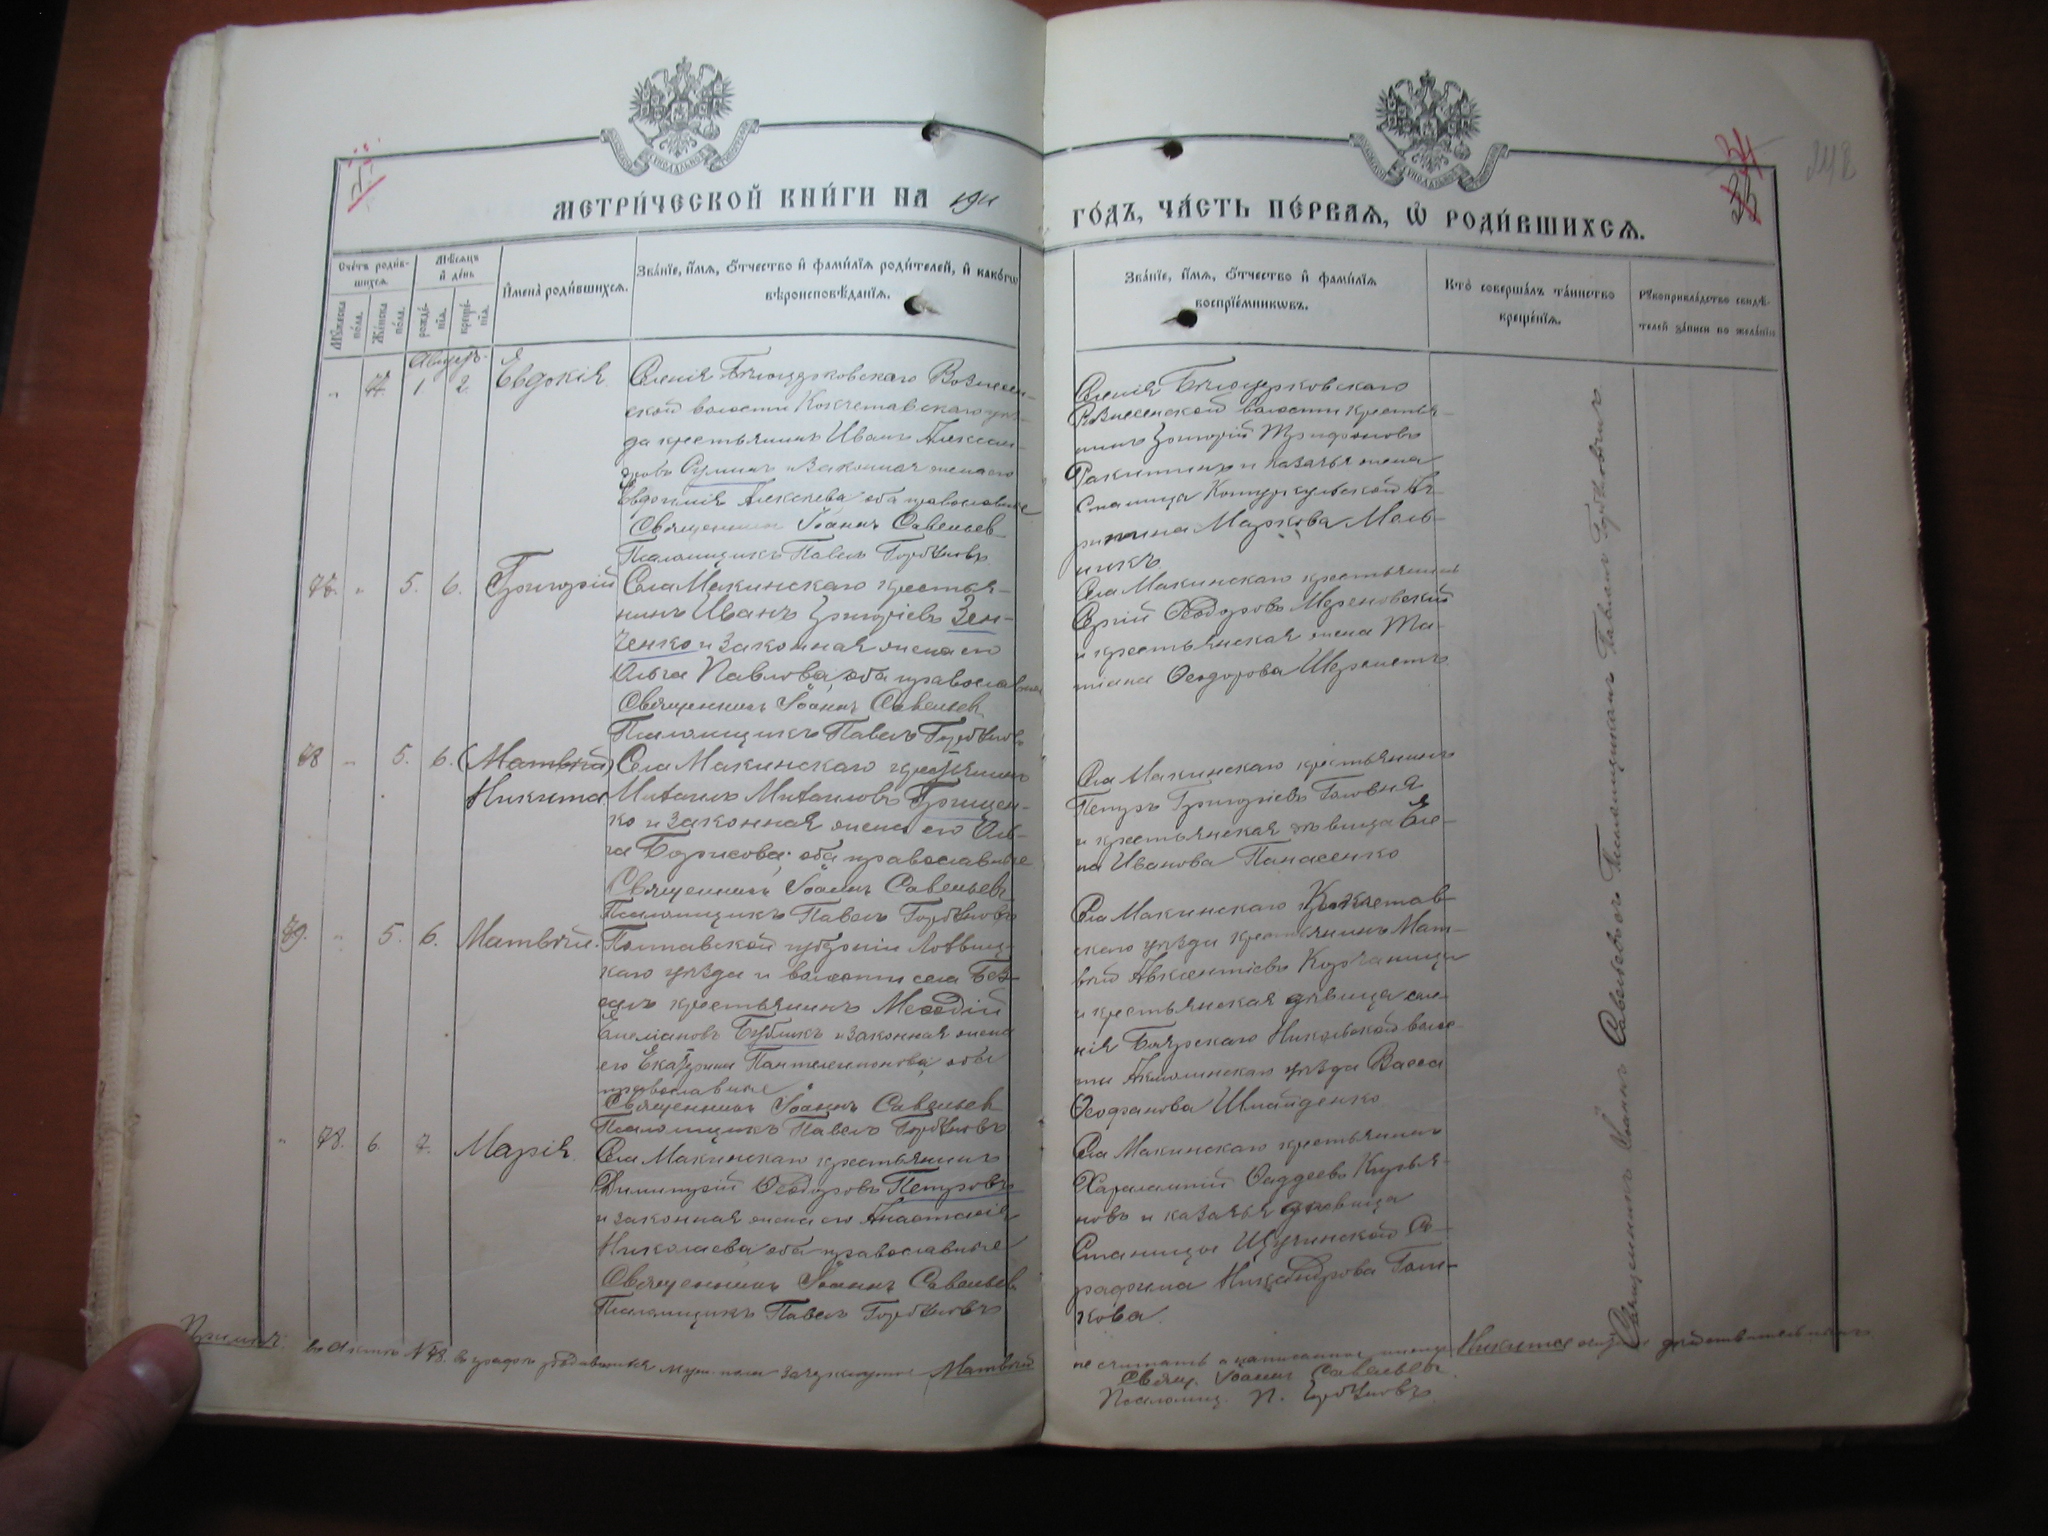 МЕТРИ́ЧЕСКОЙ КНИ́ГИ НА 1911
ГО́ДЪ, ЧА́СТЬ ПЕ́РВАѦ, Ѽ РОДИ́ВШИХСѦ.
Сче́тъ роди́в-
шихсѧ.
Мѣ́сяцъ
и҆ де́нь
Мꙋ́жеска
по́ла.
Же́нска
по́ла.
рожде́-
нїѧ.
креще́-
нїѧ.
И҆мена̀ роди́вшихсѧ.
Зва́нїе, и҆́мѧ, ѻ҆́тчество и҆ фами́лїѧ роди́телей, и҆ како́гѡ
вѣроисповѣ́данїѧ.
Зва́нїе, и҆́мѧ, ѻ҆́тчество и҆ фами́лїѧ
воспрїе́мникѡвъ.
Кто̀ соверша́лъ та́инство
креще́нїѧ.
Рꙋкоприкла́дство свидѣ́-
телей за́писи по жела́нїю
Августъ
77. 1. 2. Евдокія.
ской волости Кокчетавскаго уѣз-
да крестьянинъ Иванъ Алексан-
дровъ и законная жена его
Алексѣева оба православные
Священникъ Іоаннъ Савельевъ
Псаломщикъ Павелъ Горбуновъ
Вознесенской волости крестья-
нинъ Григорій Трифоновъ
Ракитинъ и казачья жена
Станицы Котуркульской
Маркова Мель-
никъ
5. 6. Григорій
Села Макинскаго крестья-
нинъ Иванъ Григорьевъ Зен-
ченко и законная жена его
Ольга Павлова, оба православные
Священникъ Іоаннъ Савельевъ
Псаломщикъ Павелъ Горбуновъ
Села Макинскаго крестьянинъ
Сергій Ѳеодоровъ Мереновскій
и крестьянская жена Та-
тіана Ѳеодорова Шереметъ
78 5. 6. (Матвѣй)
Никита
Села Макинскаго крестьянинъ
Михаилъ Михаиловъ Грищен-
ко и законная жена его Оль-
га Борисова, оба православные
Священникъ Іоаннъ Савельевъ
Псаломщикъ Павелъ Горбуновъ
Села Макинскаго крестьянинъ
Петръ Григорьевъ Головня
и крестьянская дѣвица Еле-
на Иванова Панасенко
79. 5. 6. Матвѣй.
Полтавской губерніи Лохвиц-
каго уѣзда и волости села Без-
салъ крестьянинъ Меѳодій
Емеліановъ Бубликъ и законная жена
его Екатерина Пантелеимонова, оба
православные
Священникъ Іоаннъ Савельевъ
Псаломщикъ Павелъ Горбуновъ
Села Макинскаго Кокчетав-
скаго уѣзда крестьянинъ Мат-
вѣй Авксентіевъ
и крестьянская дѣвица селе-
нія Боярскаго Никольской воло-
сти Акмолинскаго уѣзда Васса
Ѳеофанова Шпайденко
78. 6. 7. Марія.
Села Макинскаго крестьянинъ
Димитрій Ѳеодоровъ Петровъ
и законная жена его Анастасія
Николаева, оба православные
Священникъ Іоаннъ Савельевъ
Псаломщикъ Павелъ Горбуновъ
Села Макинскаго крестьянинъ
Харалампій Ѳаддеевъ Курья-
новъ и казачья дѣвица
Станицы Щучинской Се-
рафима Никандрова Гал-
кова
Священникъ Іоаннъ Савельевъ Псаломщикъ Павелъ Горбуновъ
Примѣч: въ актѣ № 78. въ графѣ родившихся муж. пола зачеркнутое Матвѣй
не считать а написанное имя Никита считать дѣйствительнымъ
Свящ. Іоаннъ Савельевъ
Псаломщ. П. Горбуновъ